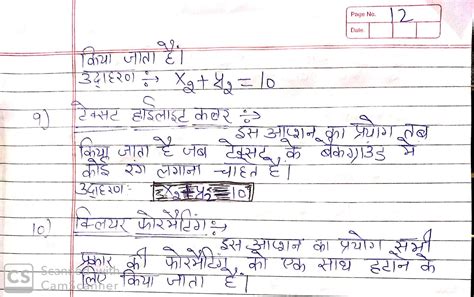 Page No. 12
Date
किया जाता है।
उदाहरण :→ X₂ + y₂ = 10
9) टेक्सट हाईलाइट कलर :→
इस आप्शन का प्रयोग तब
किया जाता है जब टेक्सट के बैकग्राउंड में
कोई रंग लगाना चाहते है।
उदाहरण: X₂ + y₂ = 10
10) क्लियर फोरमैटिंग :→
इस आप्शन का प्रयोग सभी
प्रकार की फोरमैटिंग को एक साथ हटाने के
लिए किया जाता है।
CS Scanned with
CamScanner